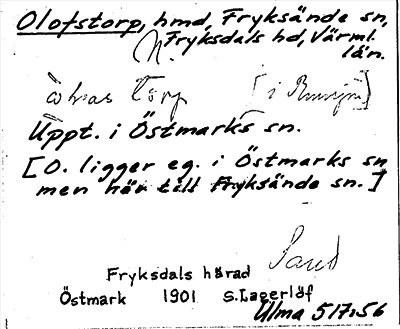 Olofstorp, hmd, Fryksände sn,
N. Fryksdals hd, Värml.
län.
torp [i
Uppt. i Östmarks sn.
[O. ligger eg. i Östmarks sn
men hör till Fryksände sn.]
Fryksdals härad
Östmark 1901 S. Lagerlöf
Ulma 517:56